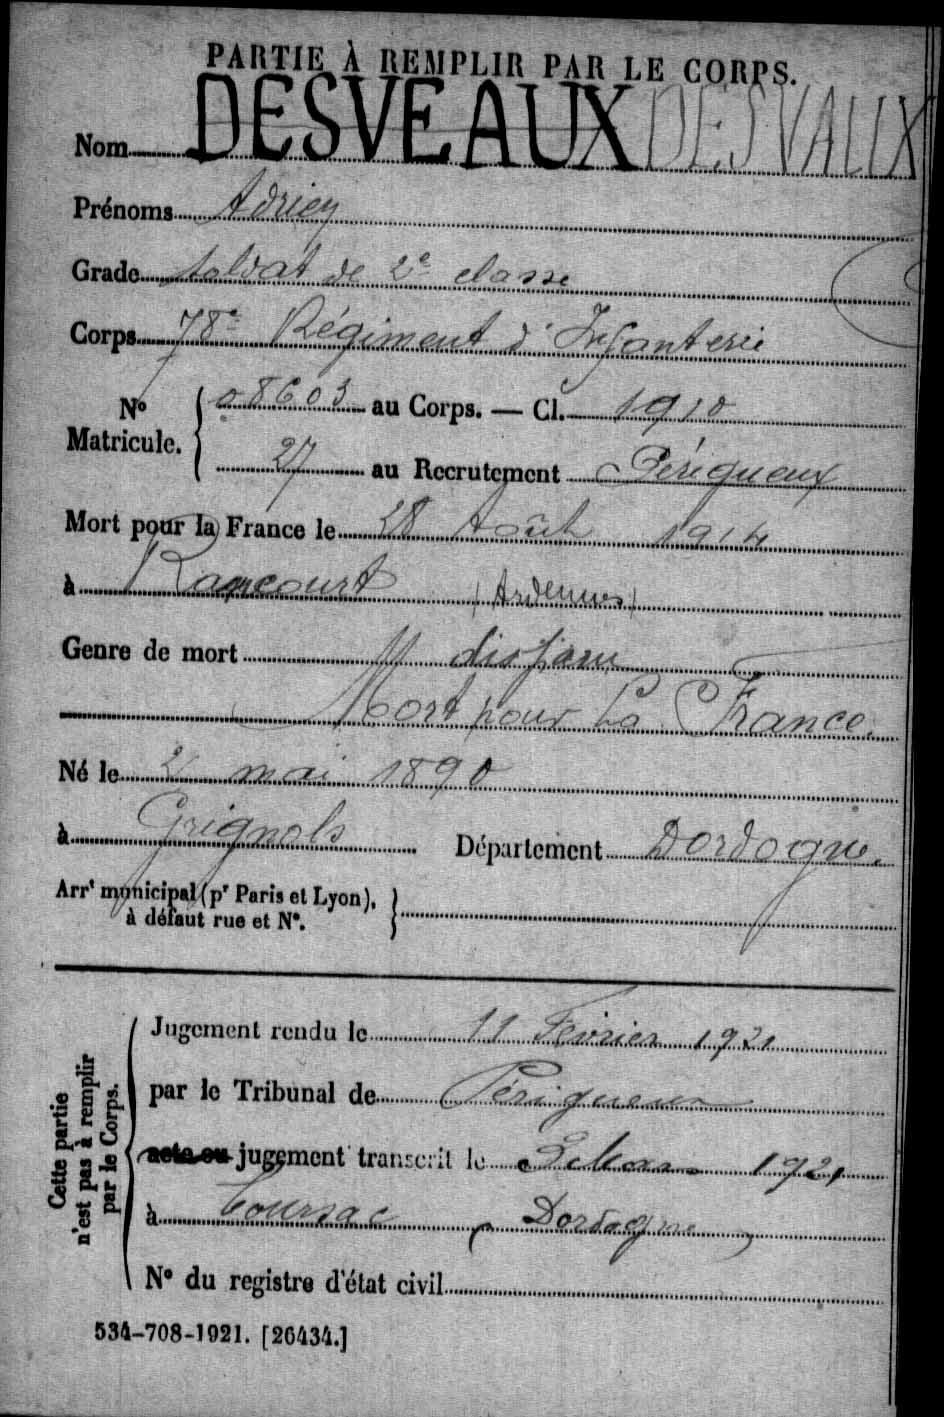 PARTIE À REMPLIR PAR LE CORPS.
Nom DESVEAUX DESVAUX
Prénoms Adrien
Grade Soldat de 2e classe
Corps 78e Régiment d'Infanterie
N° Matricule. { 08603 au Corps. — Cl. 1910
27 au Recrutement Périgueux
Mort pour la France le 28 Août 1914
à Raucourt (Ardennes)
Genre de mort disparu
Mort pour la France.
Né le 2 mai 1890
à Grignols Département Dordogne.
Arrt municipal (pr Paris et Lyon), à défaut rue et N°. }
Cette partie n'est pas à remplir par le Corps.
Jugement rendu le 11 Février 1921
par le Tribunal de Périgueux
acte ou jugement transcrit le Mars 1921
à Coursac (Dordogne)
N° du registre d'état civil
534-708-1921. [26434.]